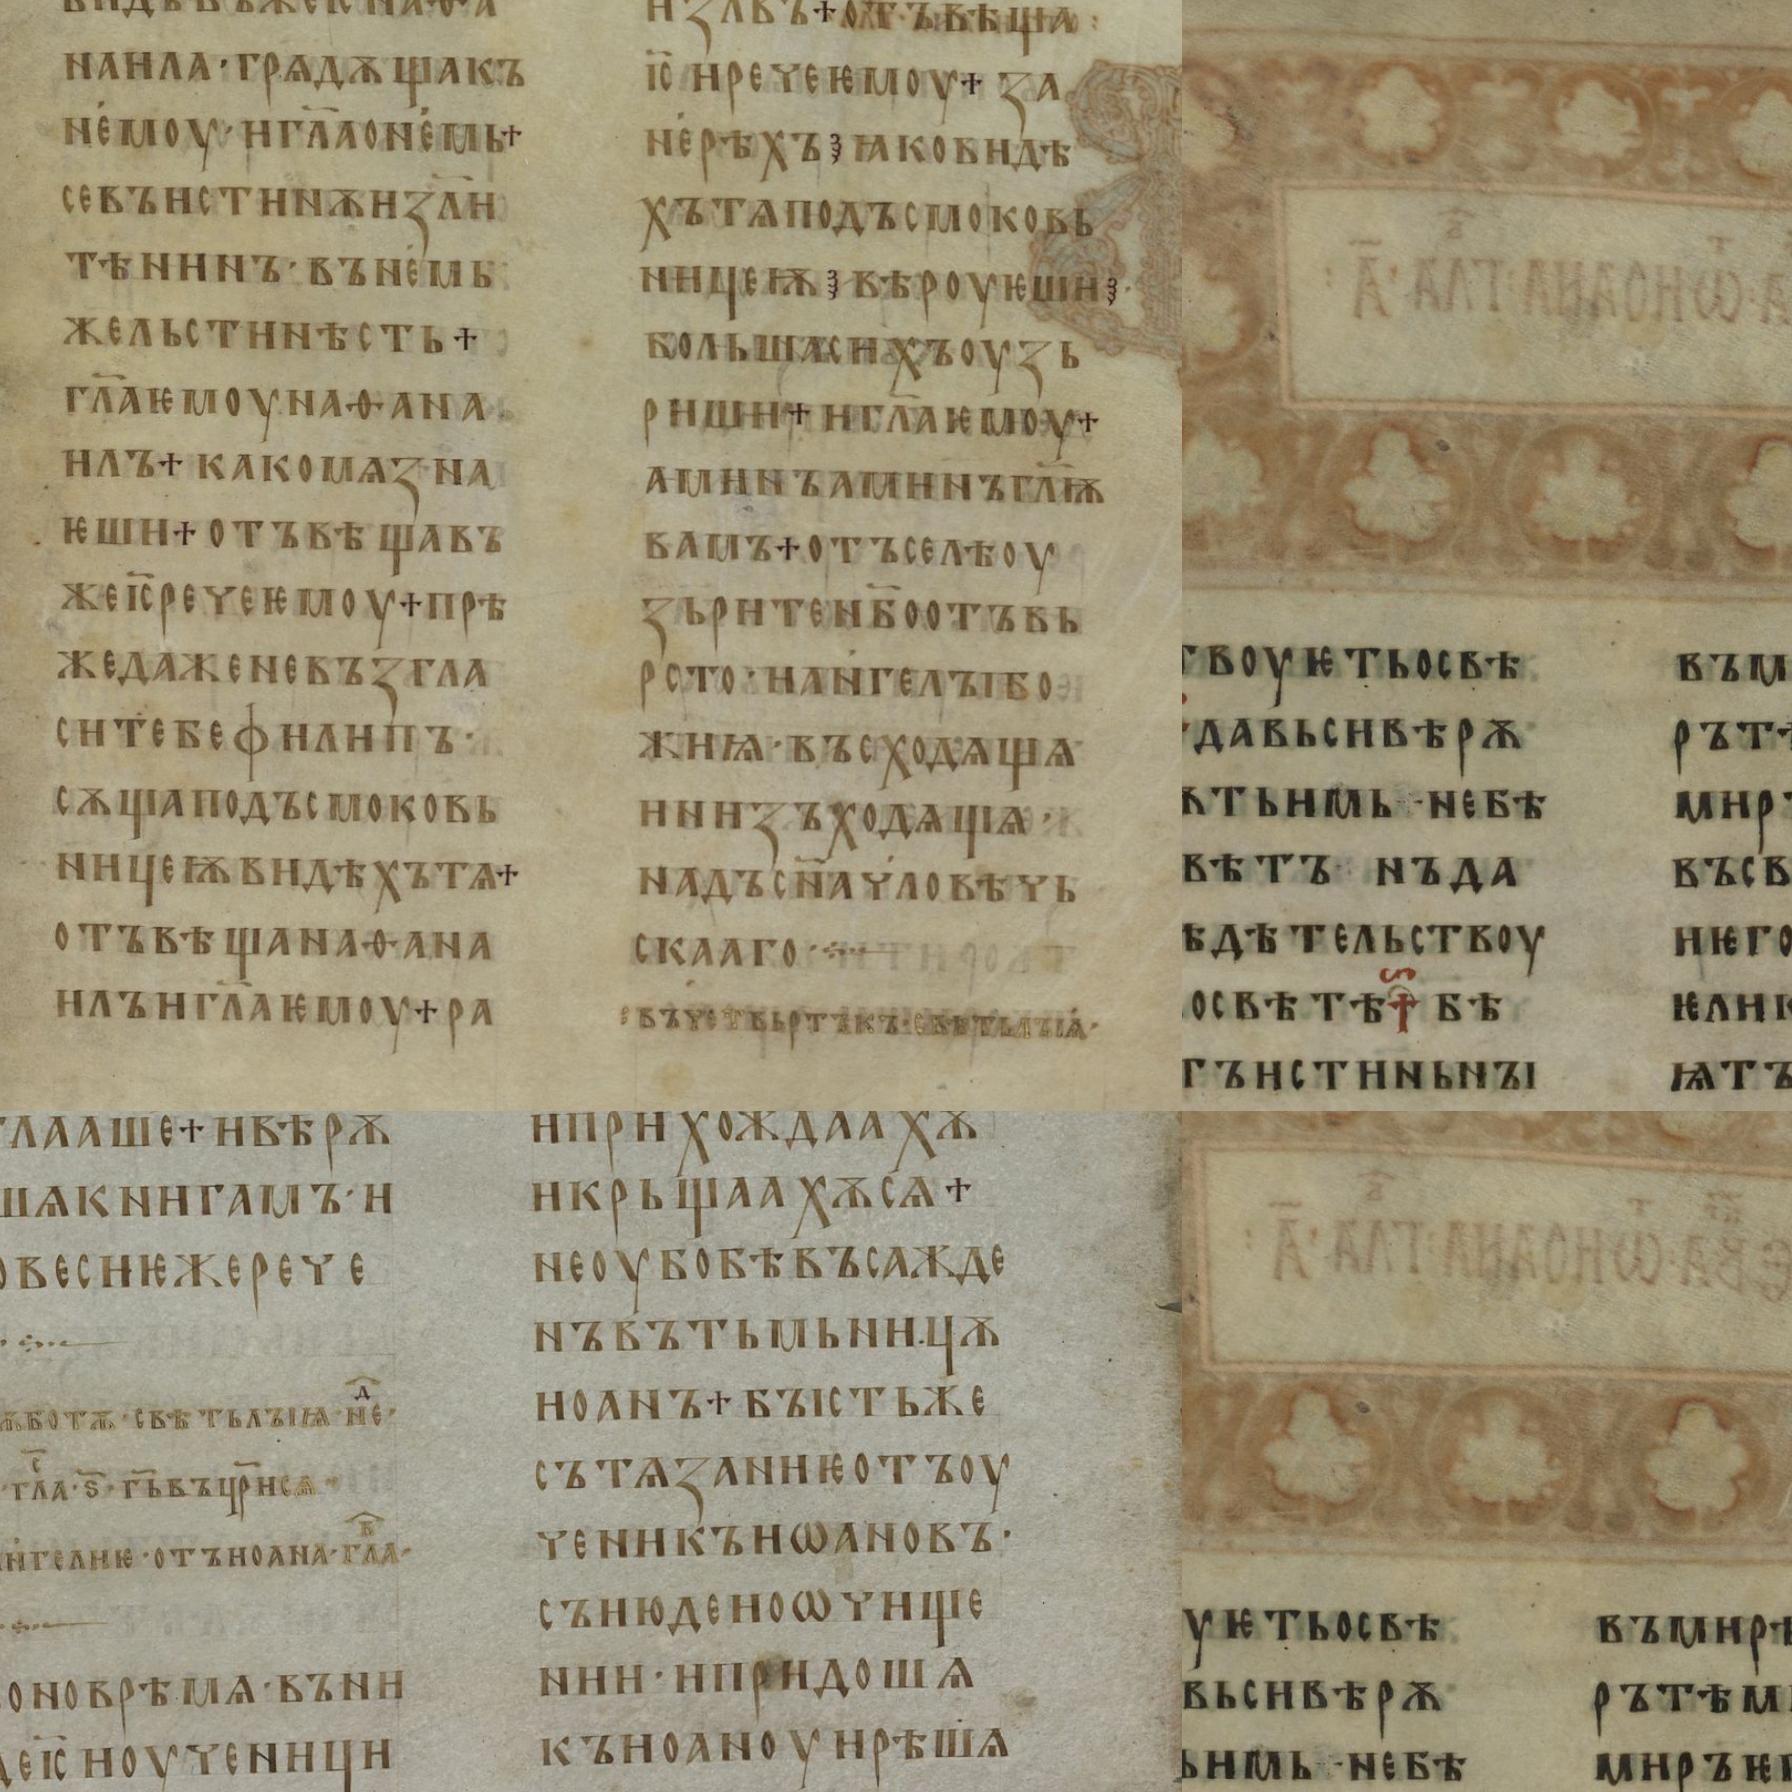 нанла·грѧдѫщакъ
немоу·нгл҃аонемь+
севънстннѫнзл҃н
тѣннъ·вънемь
жельстннѣсть+
гл҃аѥмоуна-ѳ-ана
нлъ+какомѧзна
ѥшн+отъвѣщавъ
жеі҃сречеѥмоу+прѣ
жедаженевъзгла
снтебефнлнпъ·
сѫщаподъсмоковь
ннцеѭвндѣхътѧ+
отъвѣщана-ѳ-ана
нлънгл҃аѥмоу+ра
нз҃лвъ+отъвѣща
і҃с нречеѥмоу+ за
нерѣхъꙁꙗковндѣ
хътѧподъсмоковь
ннцеѭꙁвѣроуѥшнꙁ·
большаснхъоузь
рншн+нгл҃аѥмоу+
амннъамннъгл҃ѭ
вамъ+отъселѣоу
зьрнтен҃боотъвь
рсто·нанг҃елꙑбо
жнѩ·въсходѧщѧ
ннзъходѧщѧ·
надъсн҃ачловѣчь
скааго·
въчетвьртъкъ·свѣтълꙑѩ·
твоуѥтьосвѣ
давьснвѣрѫ
ѣтьнмь·небѣ
вѣтъ нъда
ѣдѣтельствоу
освѣтѣ+ бѣ
гънстнньнꙑ
въм
рът
мнр
въсв
нѥго
ѥлнк
ꙗтъ
глааше+нвѣрѫ
шѧкннгамъ·н
овеснѥжерече
ѫботѫ·свѣтълꙑѩ·не·
·гл҃а·ѕ·гь҃въцр҃нсѧ
нг҃елнѥ·отъноана·гла·
онобрѣмѧ·вънн
деі҃с ноученнцн
нпрнхождаахѫ
нкрьщаахѫсѧ+
неоубобѣвъсажде
нъвътьмьннцѫ
ноанъ+бꙑстьже
сътѧзаннѥотъоу
ченнкънѡановъ·
сънюденоѡчнще
ннн·нпрндошѧ
къноаноунрѣшѧ
уѥтьосвѣ
вьснвѣрѫ
ьнмь·небѣ
въмнрѣ
рътѣм
мнръѥ